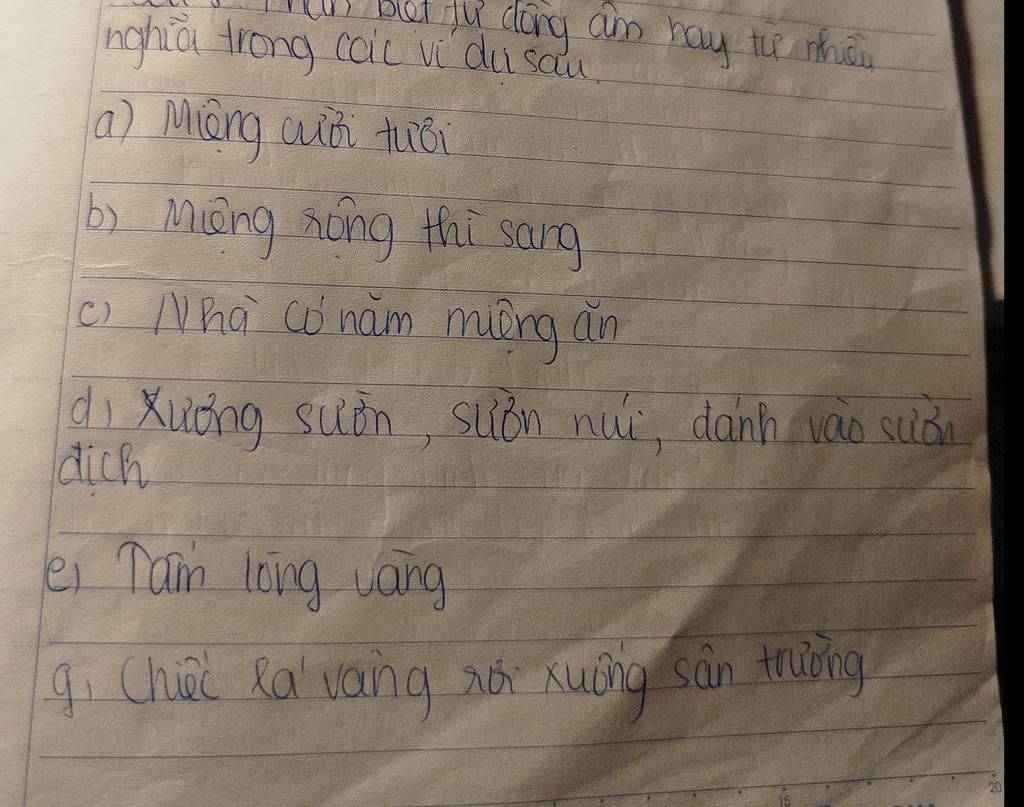 Phân biệt từ đồng âm hay từ nhiều
nghĩa trong các ví dụ sau.
a) Miệng cười tươi
b) Miệng rộng thì sang
c) Nhà có năm miệng ăn
d, Xương sườn, sườn núi, đánh vào sườn
địch
e, Tấm lòng vàng
g, Chiếc lá vàng rơi xuống sân trường
15
20